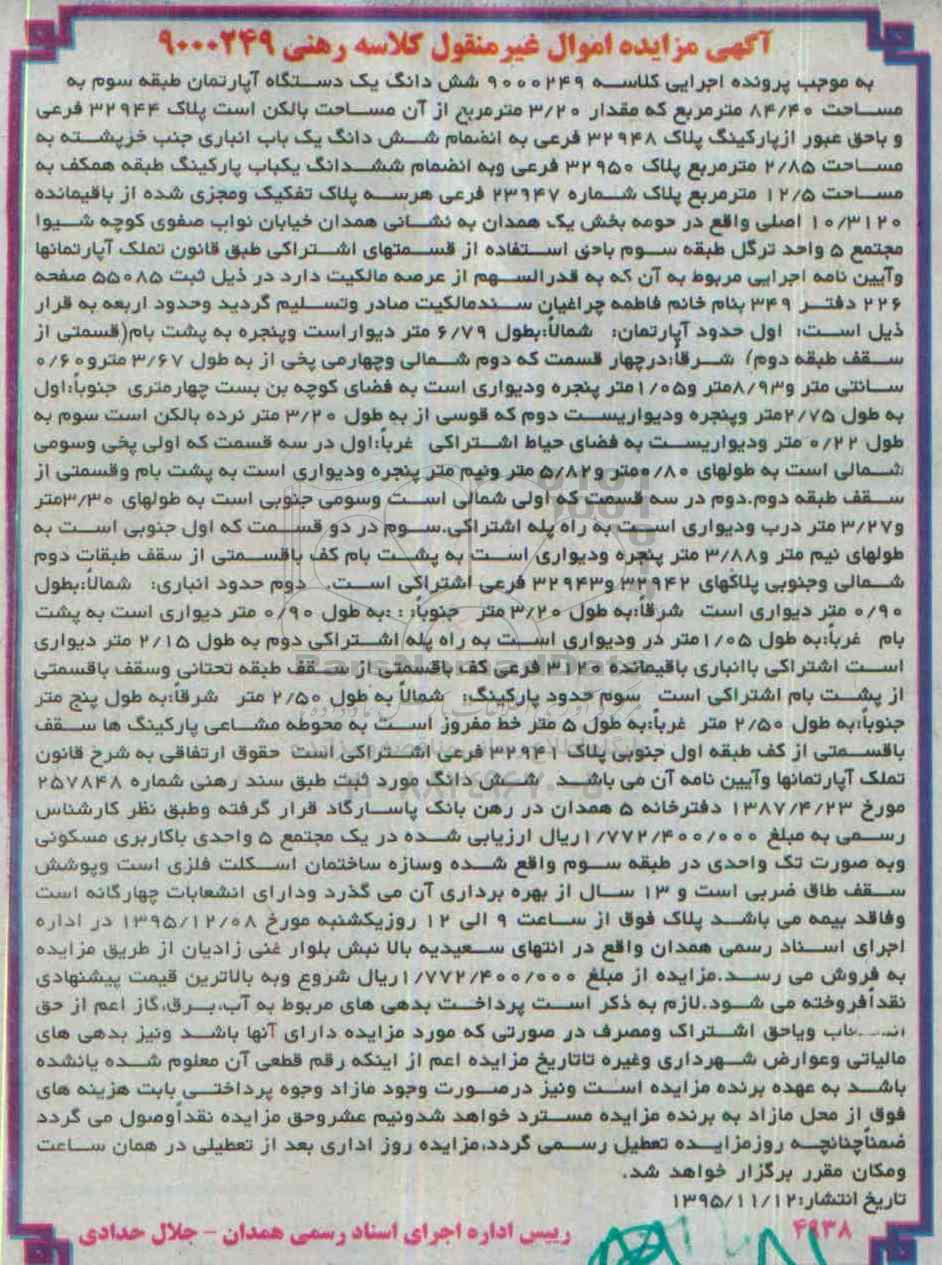 آگهی مزایده اموال غیرمنقول کلاسه رهنی ۹۰۰۰۲۴۹
به موجب پرونده اجرایی کلاسه ۹۰۰۰۲۴۹ شش دانگ یک دستگاه آپارتمان طبقه سوم به
مساحت ۸۴/۴۰ مترمربع که مقدار ۳/۲۰ مترمربع از آن مساحت بالکن است پلاک ۳۲۹۴۴ فرعی
و باحق عبور ازپارکینگ پلاک ۳۲۹۴۸ فرعی به انضمام شش دانگ یک باب انباری جنب خرپشته به
مساحت ۲/۸۵ مترمربع پلاک ۳۲۹۵۰ فرعی وبه انضمام ششدانگ یکباب پارکینگ طبقه همکف به
مساحت ۱۲/۵ مترمربع پلاک شماره ۲۳۹۴۷ فرعی هرسه پلاک تفکیک ومجزی شده از باقیمانده
۱۰/۳۱۲۰ اصلی واقع در حومه بخش یک همدان به نشانی همدان خیابان نواب صفوی کوچه شیوا
مجتمع ۵ واحد ترگل طبقه سوم باحق استفاده از قسمتهای اشتراکی طبق قانون تملک آپارتمانها
وآیین نامه اجرایی مربوط به آن که به قدرالسهم از عرصه مالکیت دارد در ذیل ثبت ۵۵۰۸۵ صفحه
۲۲۶ دفتر ۳۴۹ بنام خانم فاطمه چراغیان سندمالکیت صادر وتسلیم گردید وحدود اربعه به قرار
ذیل است: اول حدود آپارتمان: شمالاً:بطول ۶/۷۹ متر دیواراست وپنجره به پشت بام(قسمتی از
سقف طبقه دوم) شرقاً:درچهار قسمت که دوم شمالی وچهارمی پخی از به طول ۳/۶۷ مترو۰/۶۰
سانتی متر و۸/۹۳متر و۱/۰۵متر پنجره ودیواری است به فضای کوچه بن بست چهارمتری جنوباً:اول
به طول ۲/۷۵متر وپنجره ودیواریست دوم که قوسی از به طول ۳/۲۰ متر نرده بالکن است سوم به
طول ۰/۲۲ متر ودیواریست به فضای حیاط اشتراکی غرباً:اول در سه قسمت که اولی پخی وسومی
شمالی است به طولهای ۰/۸۰متر و۵/۸۲ متر ونیم متر پنجره ودیواری است به پشت بام وقسمتی از
سقف طبقه دوم.دوم در سه قسمت که اولی شمالی است وسومی جنوبی است به طولهای ۳/۳۰متر
و۳/۲۷ متر درب ودیواری است به راه پله اشتراکی.سوم در دو قسمت که اول جنوبی است به
طولهای نیم متر و۳/۸۸ متر پنجره ودیواری است به پشت بام کف باقسمتی از سقف طبقات دوم
شمالی وجنوبی پلاکهای ۳۲۹۴۲ و۳۲۹۴۳ فرعی اشتراکی است. دوم حدود انباری: شمالاً:بطول
۰/۹۰ متر دیواری است شرقاً:به طول ۳/۲۰ متر جنوباً: : :به طول ۰/۹۰ متر دیواری است به پشت
بام غرباً:به طول ۱/۰۵متر در ودیواری است به راه پله اشتراکی دوم به طول ۲/۱۵ متر دیواری
است اشتراکی باانباری باقیمانده ۳۱۲۰ فرعی کف باقسمتی از سقف طبقه تحتانی وسقف باقسمتی
از پشت بام اشتراکی است سوم حدود پارکینگ: شمالاً به طول ۲/۵۰ متر شرقاً:به طول پنج متر
جنوباً:به طول ۲/۵۰ متر غرباً:به طول ۵ متر خط مفروز است به محوطه مشاعی پارکینگ ها سقف
باقسمتی از کف طبقه اول جنوبی پلاک ۳۲۹۴۱ فرعی اشتراکی است حقوق ارتفاقی به شرح قانون
تملک آپارتمانها وآیین نامه آن می باشد شش دانگ مورد ثبت طبق سند رهنی شماره ۲۵۷۸۴۸
مورخ ۱۳۸۷/۴/۲۳ دفترخانه ۵ همدان در رهن بانک پاسارگاد قرار گرفته وطبق نظر کارشناس
رسمی به مبلغ ۱/۷۷۲/۴۰۰/۰۰۰ریال ارزیابی شده در یک مجتمع ۵ واحدی باکاربری مسکونی
وبه صورت تک واحدی در طبقه سوم واقع شده وسازه ساختمان اسکلت فلزی است وپوشش
سقف طاق ضربی است و ۱۳ سال از بهره برداری آن می گذرد ودارای انشعابات چهارگانه است
وفاقد بیمه می باشد پلاک فوق از ساعت ۹ الی ۱۲ روزیکشنبه مورخ ۱۳۹۵/۱۲/۰۸ در اداره
اجرای اسناد رسمی همدان واقع در انتهای سعیدیه بالا نبش بلوار غنی زادیان از طریق مزایده
به فروش می رسد.مزایده از مبلغ ۱/۷۷۲/۴۰۰/۰۰۰ریال شروع وبه بالاترین قیمت پیشنهادی
نقداًفروخته می شود.لازم به ذکر است پرداخت بدهی های مربوط به آب،برق،گاز اعم از حق
ویاحق اشتراک ومصرف در صورتی که مورد مزایده دارای آنها باشد ونیز بدهی های
مالیاتی وعوارض شهرداری وغیره تاتاریخ مزایده اعم از اینکه رقم قطعی آن معلوم شده یانشده
باشد به عهده برنده مزایده است ونیز درصورت وجود مازاد وجوه پرداختی بابت هزینه های
فوق از محل مازاد به برنده مزایده مسترد خواهد شدونیم عشروحق مزایده نقداًوصول می گردد
ضمناًچنانچه روزمزایده تعطیل رسمی گردد،مزایده روز اداری بعد از تعطیلی در همان ساعت
ومکان مقرر برگزار خواهد شد.
تاریخ انتشار:۱۳۹۵/۱۱/۱۲
۴۹۳۸ رییس اداره اجرای اسناد رسمی همدان - جلال حدادی